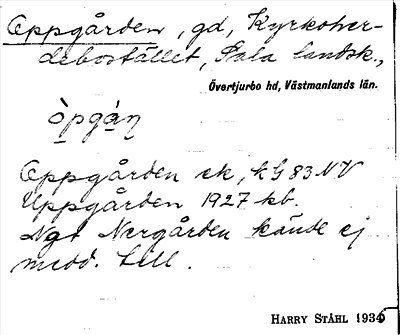 Oppgården, gd, Kyrkoher-
debostället, Sala landsk.,
Övertjurbo hd, Västmanlands län.
òpgàn̥
Oppgården ek, kG 83 NV
Uppgården 1927 kb.
Ngt Nergården kände ej
medd. till.
HARRY STÅHL 1935